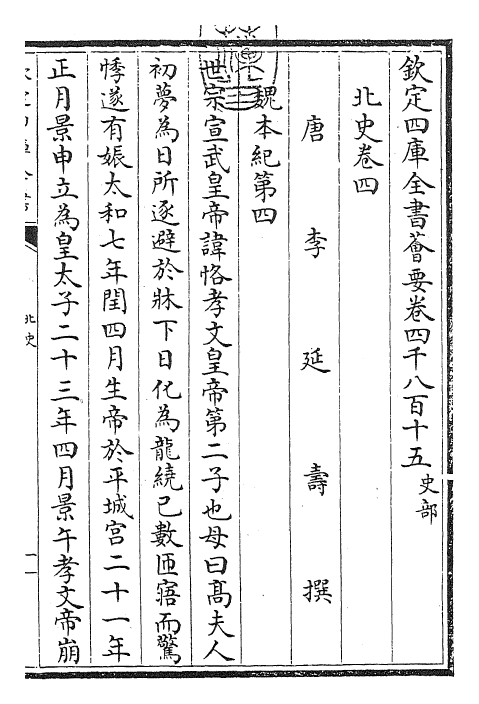 欽定四庫全書薈要卷四千八百十五 史部
北史卷四
唐 李 延 壽 撰
魏本紀第四
世宗宣武皇帝諱恪孝文皇帝第二子也母曰髙夫人
初夢為日所逐避於牀下日化為龍繞己數匝寤而驚
悸遂有娠太和七年閏四月生帝於平城宫二十一年
正月景申立為皇太子二十三年四月景午孝文帝崩
北史